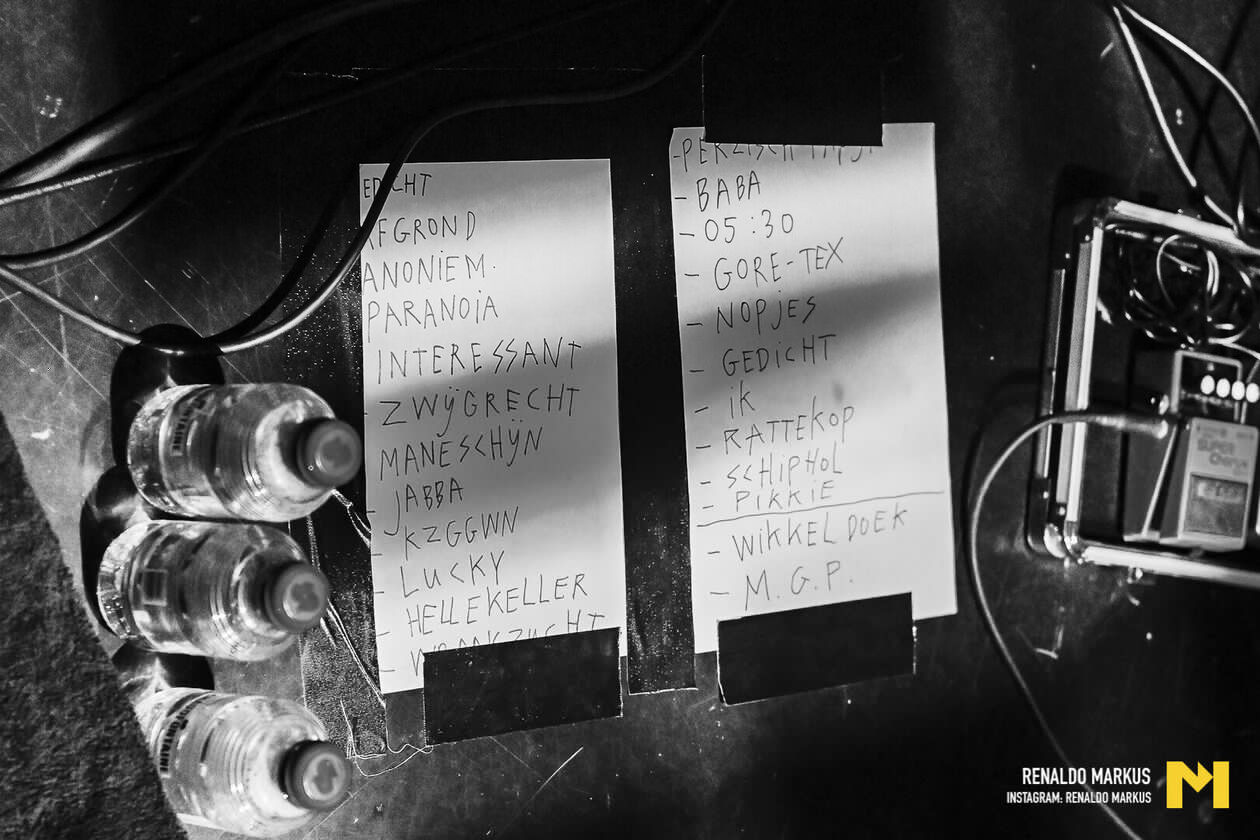 EDICHT
AFGROND
ANONIEM.
PARANOIA
INTERESSANT
- ZWIJGRECHT
MANESCHIJN
- JABBA
- KZGGWN
- LUCKY
- HELLEKELLER
- WRAAKZUCHT
- PERZISCH
- BABA
- 05:30
- GORE-TEX
- NOPJES
- GEDICHT
- IK
- RATTEKOP
- SCHIPHOL
- PIKKIE
- WIKKEL DOEK
- M.G.P.
RENALDO MARKUS
INSTAGRAM: RENALDO MARKUS
M